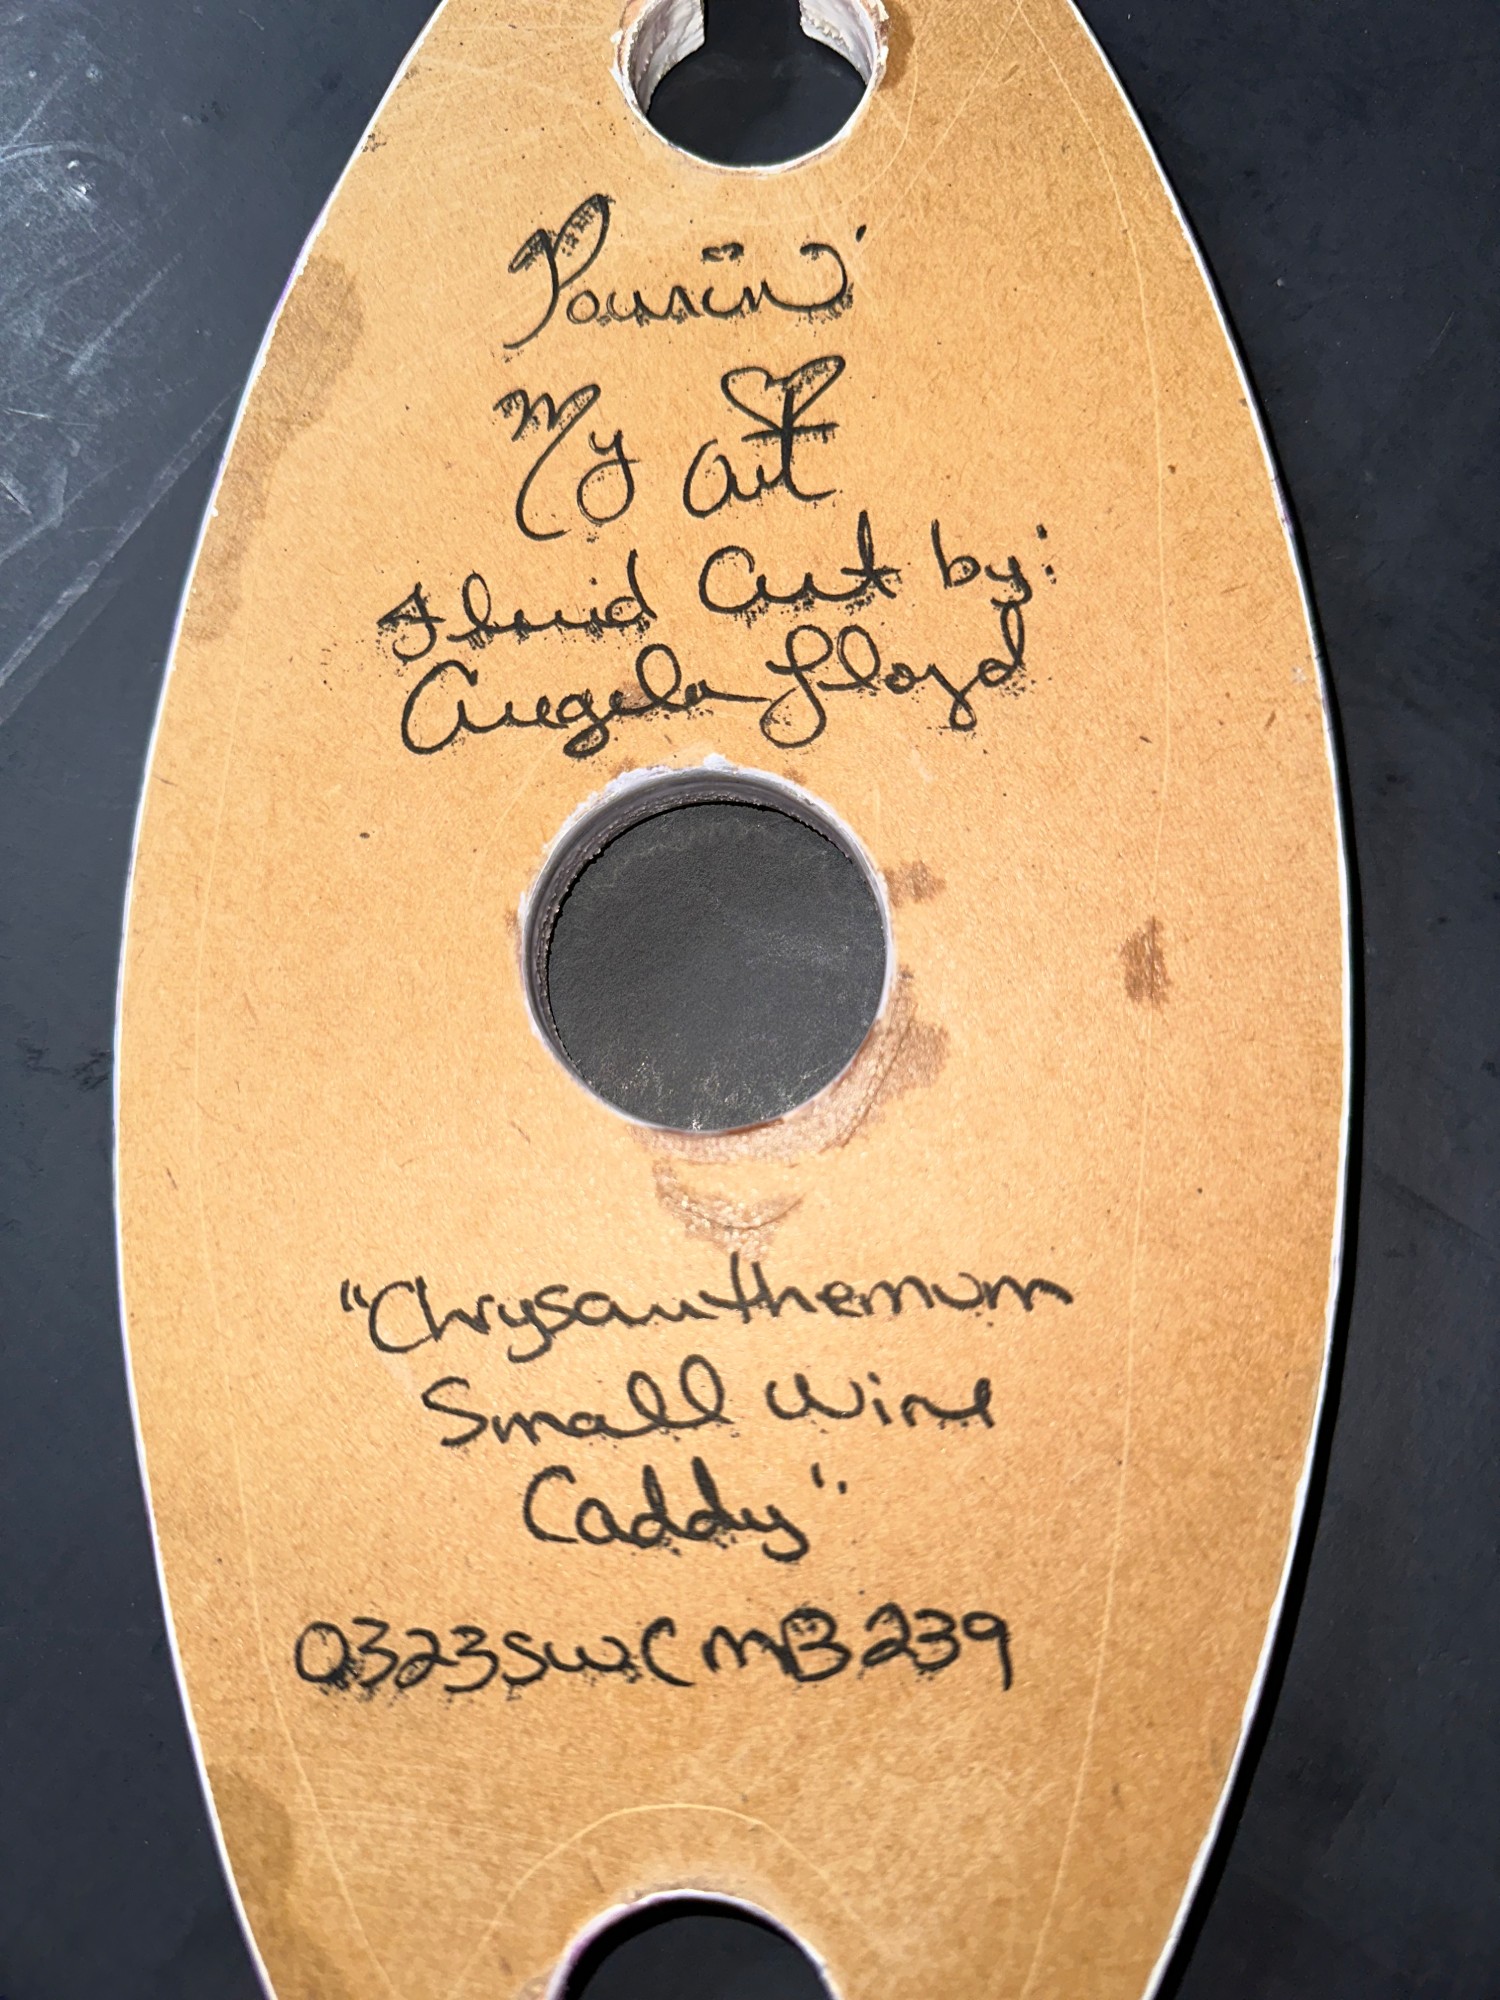 Pourin'
My Art
Fluid Art by:
Angela Lloyd
"Chrysanthemum
Small Wine
Caddy"
0323SWCMB239